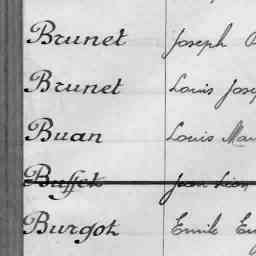 Brunet Joseph
Brunet Louis Jos
Buan Louis Mar
Buffet Jean Léon
Burgot Emile Eu